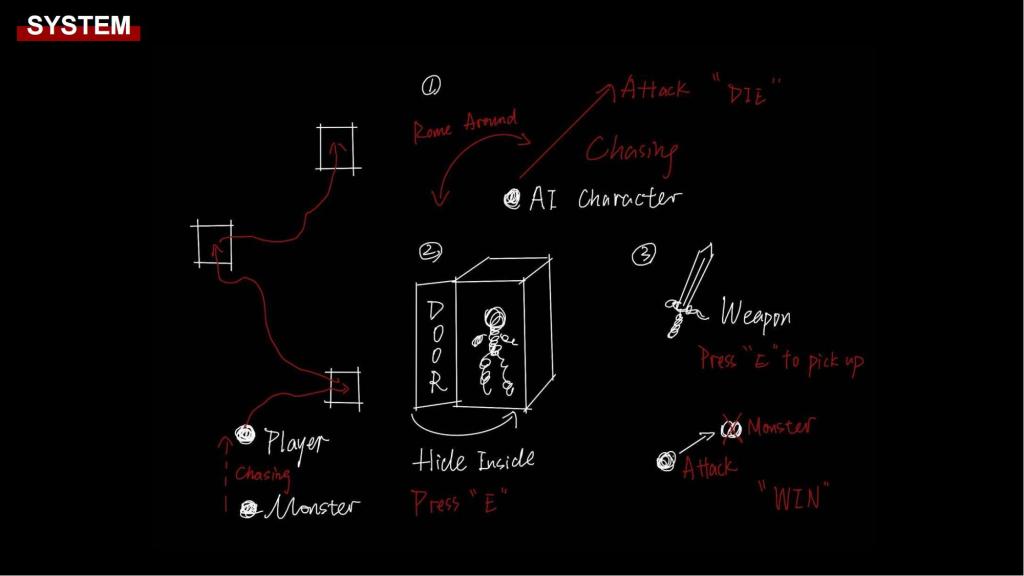 SYSTEM
①
Rome Around
Attack "DIE"
Chasing
AI Character
②
DOOR
Hide Inside
Press "E"
③
Weapon
Press "E" to pick up
Monster
Attack
"WIN"
Player
Chasing
Monster